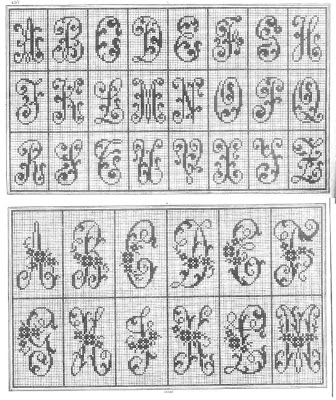 A B C D E F G H
I K L M N O P Q
R S T U V X Y Z
A B C D E F
G H I K L M